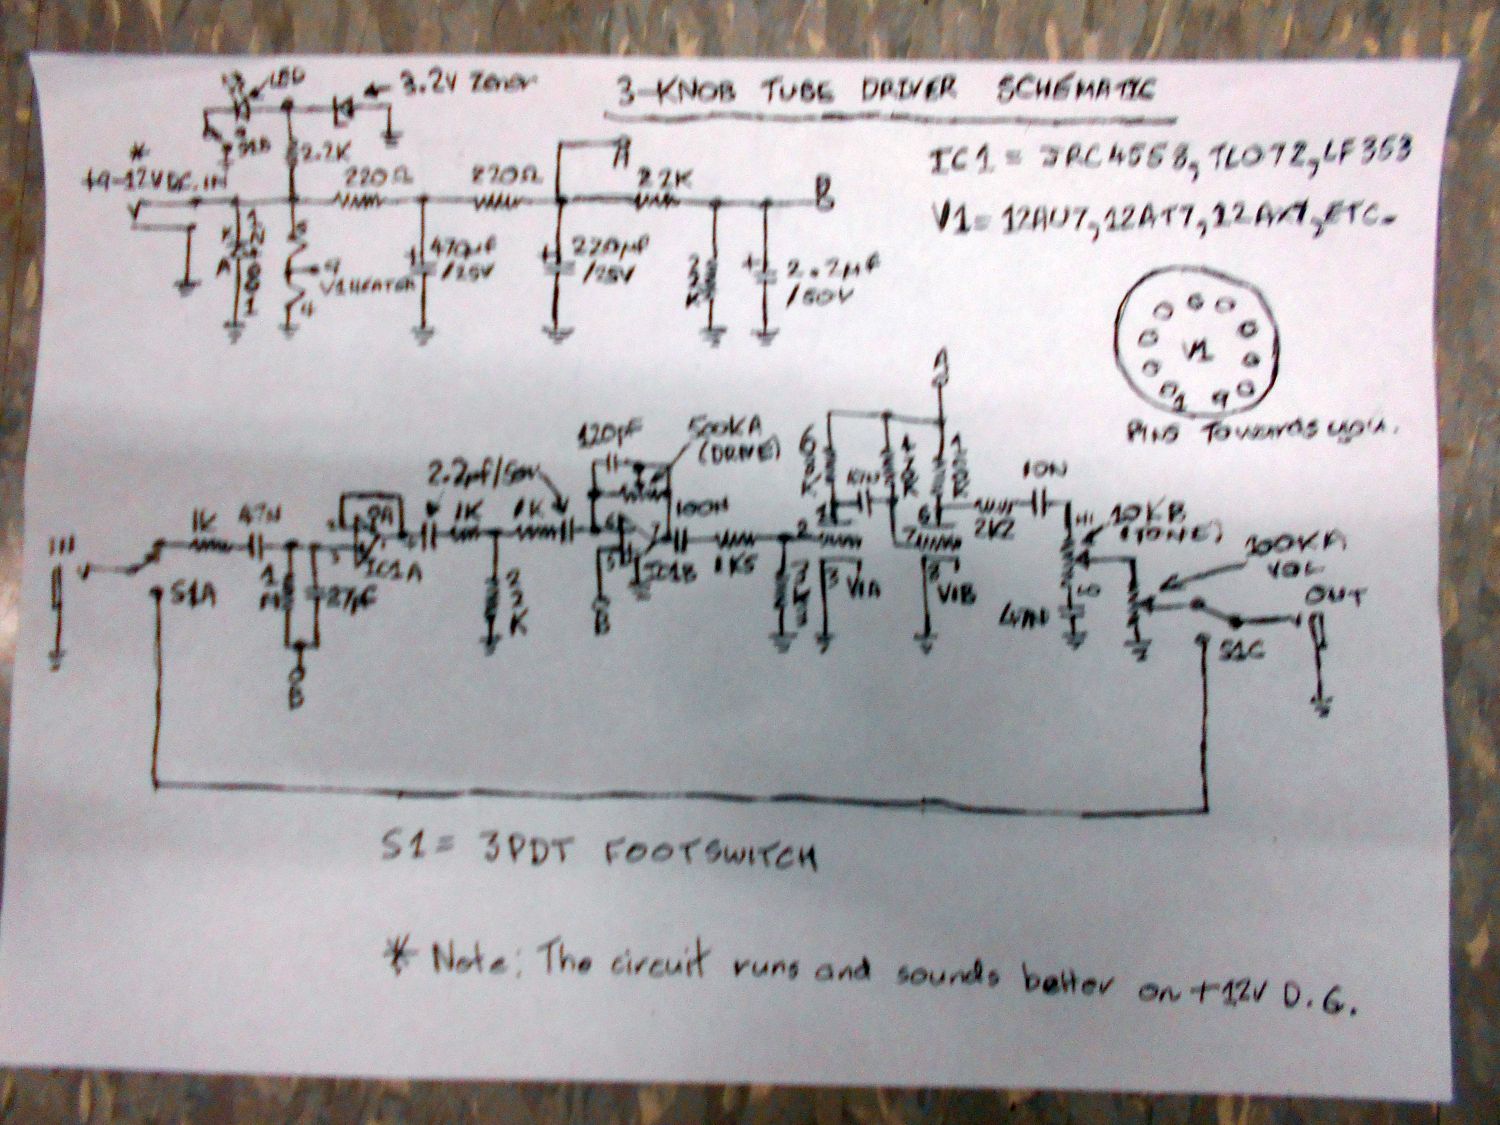 3-KNOB TUBE DRIVER SCHEMATIC
LED
3.2V Zener
S1B
2.2K
*
+9-12V DC. IN
220Ω
220Ω
A
22K
B
470µF
/25V
220µF
/25V
2.2µF
/50V
22K
9
V1 HEATER
4
IC1 = JRC4558, TL072, LF353
V1 = 12AU7, 12AT7, 12AX7, ETC.
V1
1 9
PINS TOWARDS YOU.
A
120pF
500KA
(DRIVE)
2.2µF/50V
IN
1K
47N
1K
1K
100N
1K5
10N
2K2
10KB
(TONE)
100KA
VOL
OUT
S1A
1M
27pF
IC1A
22K
IC1B
B
B
2
1
3
V1A
6
7
8
V1B
68K
150K
S1C
S1 = 3PDT FOOTSWITCH
* Note: The circuit runs and sounds better on +12V D.C.